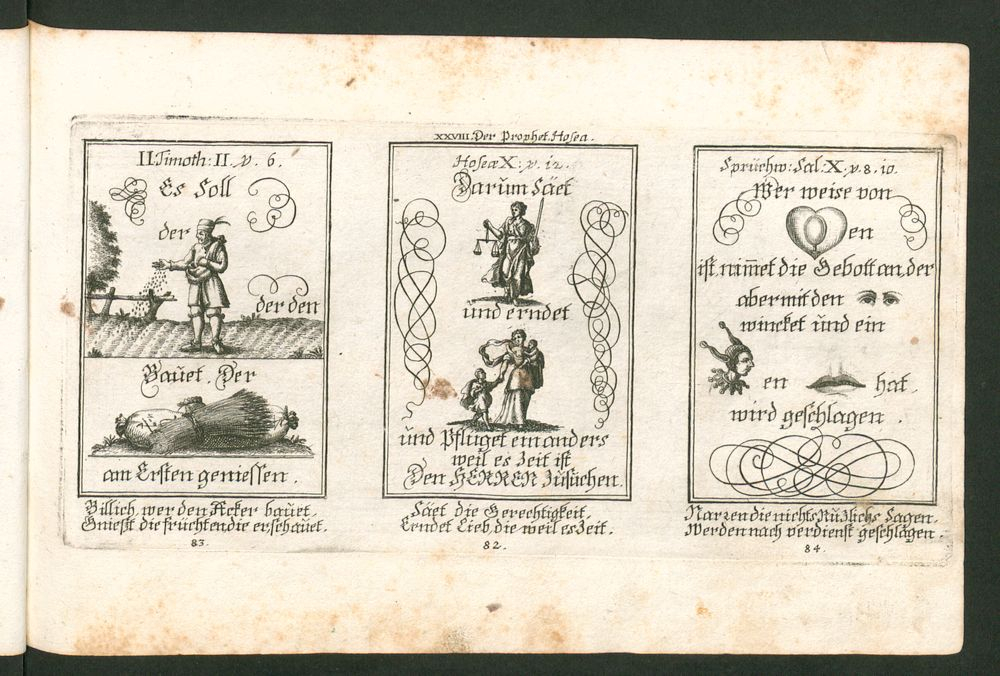 XXVIII. Der Prophet. Hosea.
II Timoth: II. v. 6.
Es Soll
der
der den
Baůet. Der
am Ersten geniessen.
Billich, wer den Acker baůet,
Gniest die früchten die er schaůet.
83.
Hoseæ X: v. 12.
Darům Säet
und erndet
ůnd Pflůget ein anders
weil es Zeit ist
Den HERREN Zůsůchen.
Säet die Gerechtigkeit,
Erndet Lieb, die weil es Zeit.
82.
Sprüchw: Sal: X. v. 8. 10.
Wer weise von
en
ist, nim̄et die Gebott an, der
aber mit den
wincket ůnd ein
en hat.
wird geschlagen.
Narren die nichts Nůzlichs Sagen,
Werden nach verdienst geschlagen.
84.